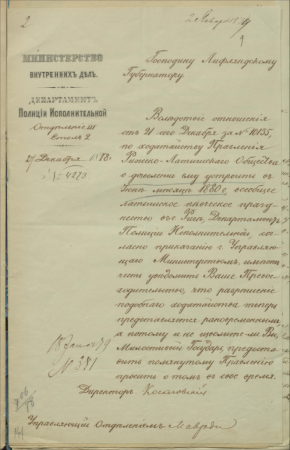 2
МИНИСТЕРСТВО
ВНУТРЕННИХЪ ДѢЛЪ.
ДЕПАРТАМЕНТЪ
ПОЛИЦІИ ИСПОЛНИТЕЛЬНОЙ
Отдѣленіе III
Столъ 2.
27 Декабря 1878
№ 4273
Господину Лифляндскому
Губернатору.
Вслѣдствіе отношенія
отъ 21 сего Декабря за № 10155,
по ходатайству Правленія
Рижско-Латышскаго Общества
о дозволеніи ему устроить въ
мѣсяцѣ 1880 г. всеобщее
латышское пѣвческое празд-
нество въ г. Ригѣ, Департаментъ
Полиціи Исполнительной, со-
гласно приказанію г. Управляю-
щаго Министерствомъ, имѣетъ
честь увѣдомить Ваше Превос-
ходительство, что разрѣшеніе
подобнаго ходатайства теперь
представляется
а потому и не изволите ли Вы,
Милостивый Государь, предоста-
вить помянутому Правленію
просить о томъ въ свое время.
Директоръ
Управляющій Отдѣленіемъ
№ 381